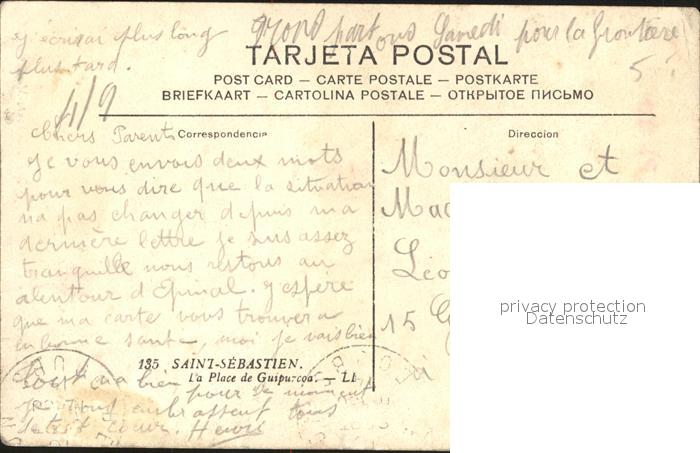 j'écrirai plus long
plus tard.
nous partons Samedi pour la frontière
5
TARJETA POSTAL
POST CARD — CARTE POSTALE — POSTKARTE
BRIEFKAART — CARTOLINA POSTALE — ОТКРЫТОЕ ПИСЬМО
4/9
Correspondencia
Direccion
Chers Parents
Je vous envois deux mots
pour vous dire que la situation
na pas changer depuis ma
dernière lettre je suis assez
tranquille nous restons au
alentour d'Epinal. J'espère
que ma carte vous trouvera
en bonne santé, moi je vais bien
Tout va bien pour le moment
embrassent tous
de tout coeur. Henri
135 SAINT-SÉBASTIEN.
La Place de Guipurcoa. — LL
Monsieur et
Mad
Léo
15 G
privacy protection
Datenschutz